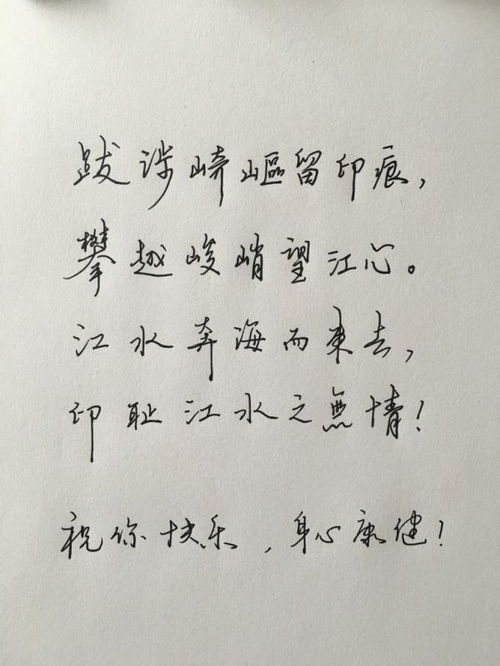 跋涉崎嶇留印痕，
攀越峻峭望江心。
江水奔海而東去，
印耻江水之無情！
祝你快乐，身心康健！